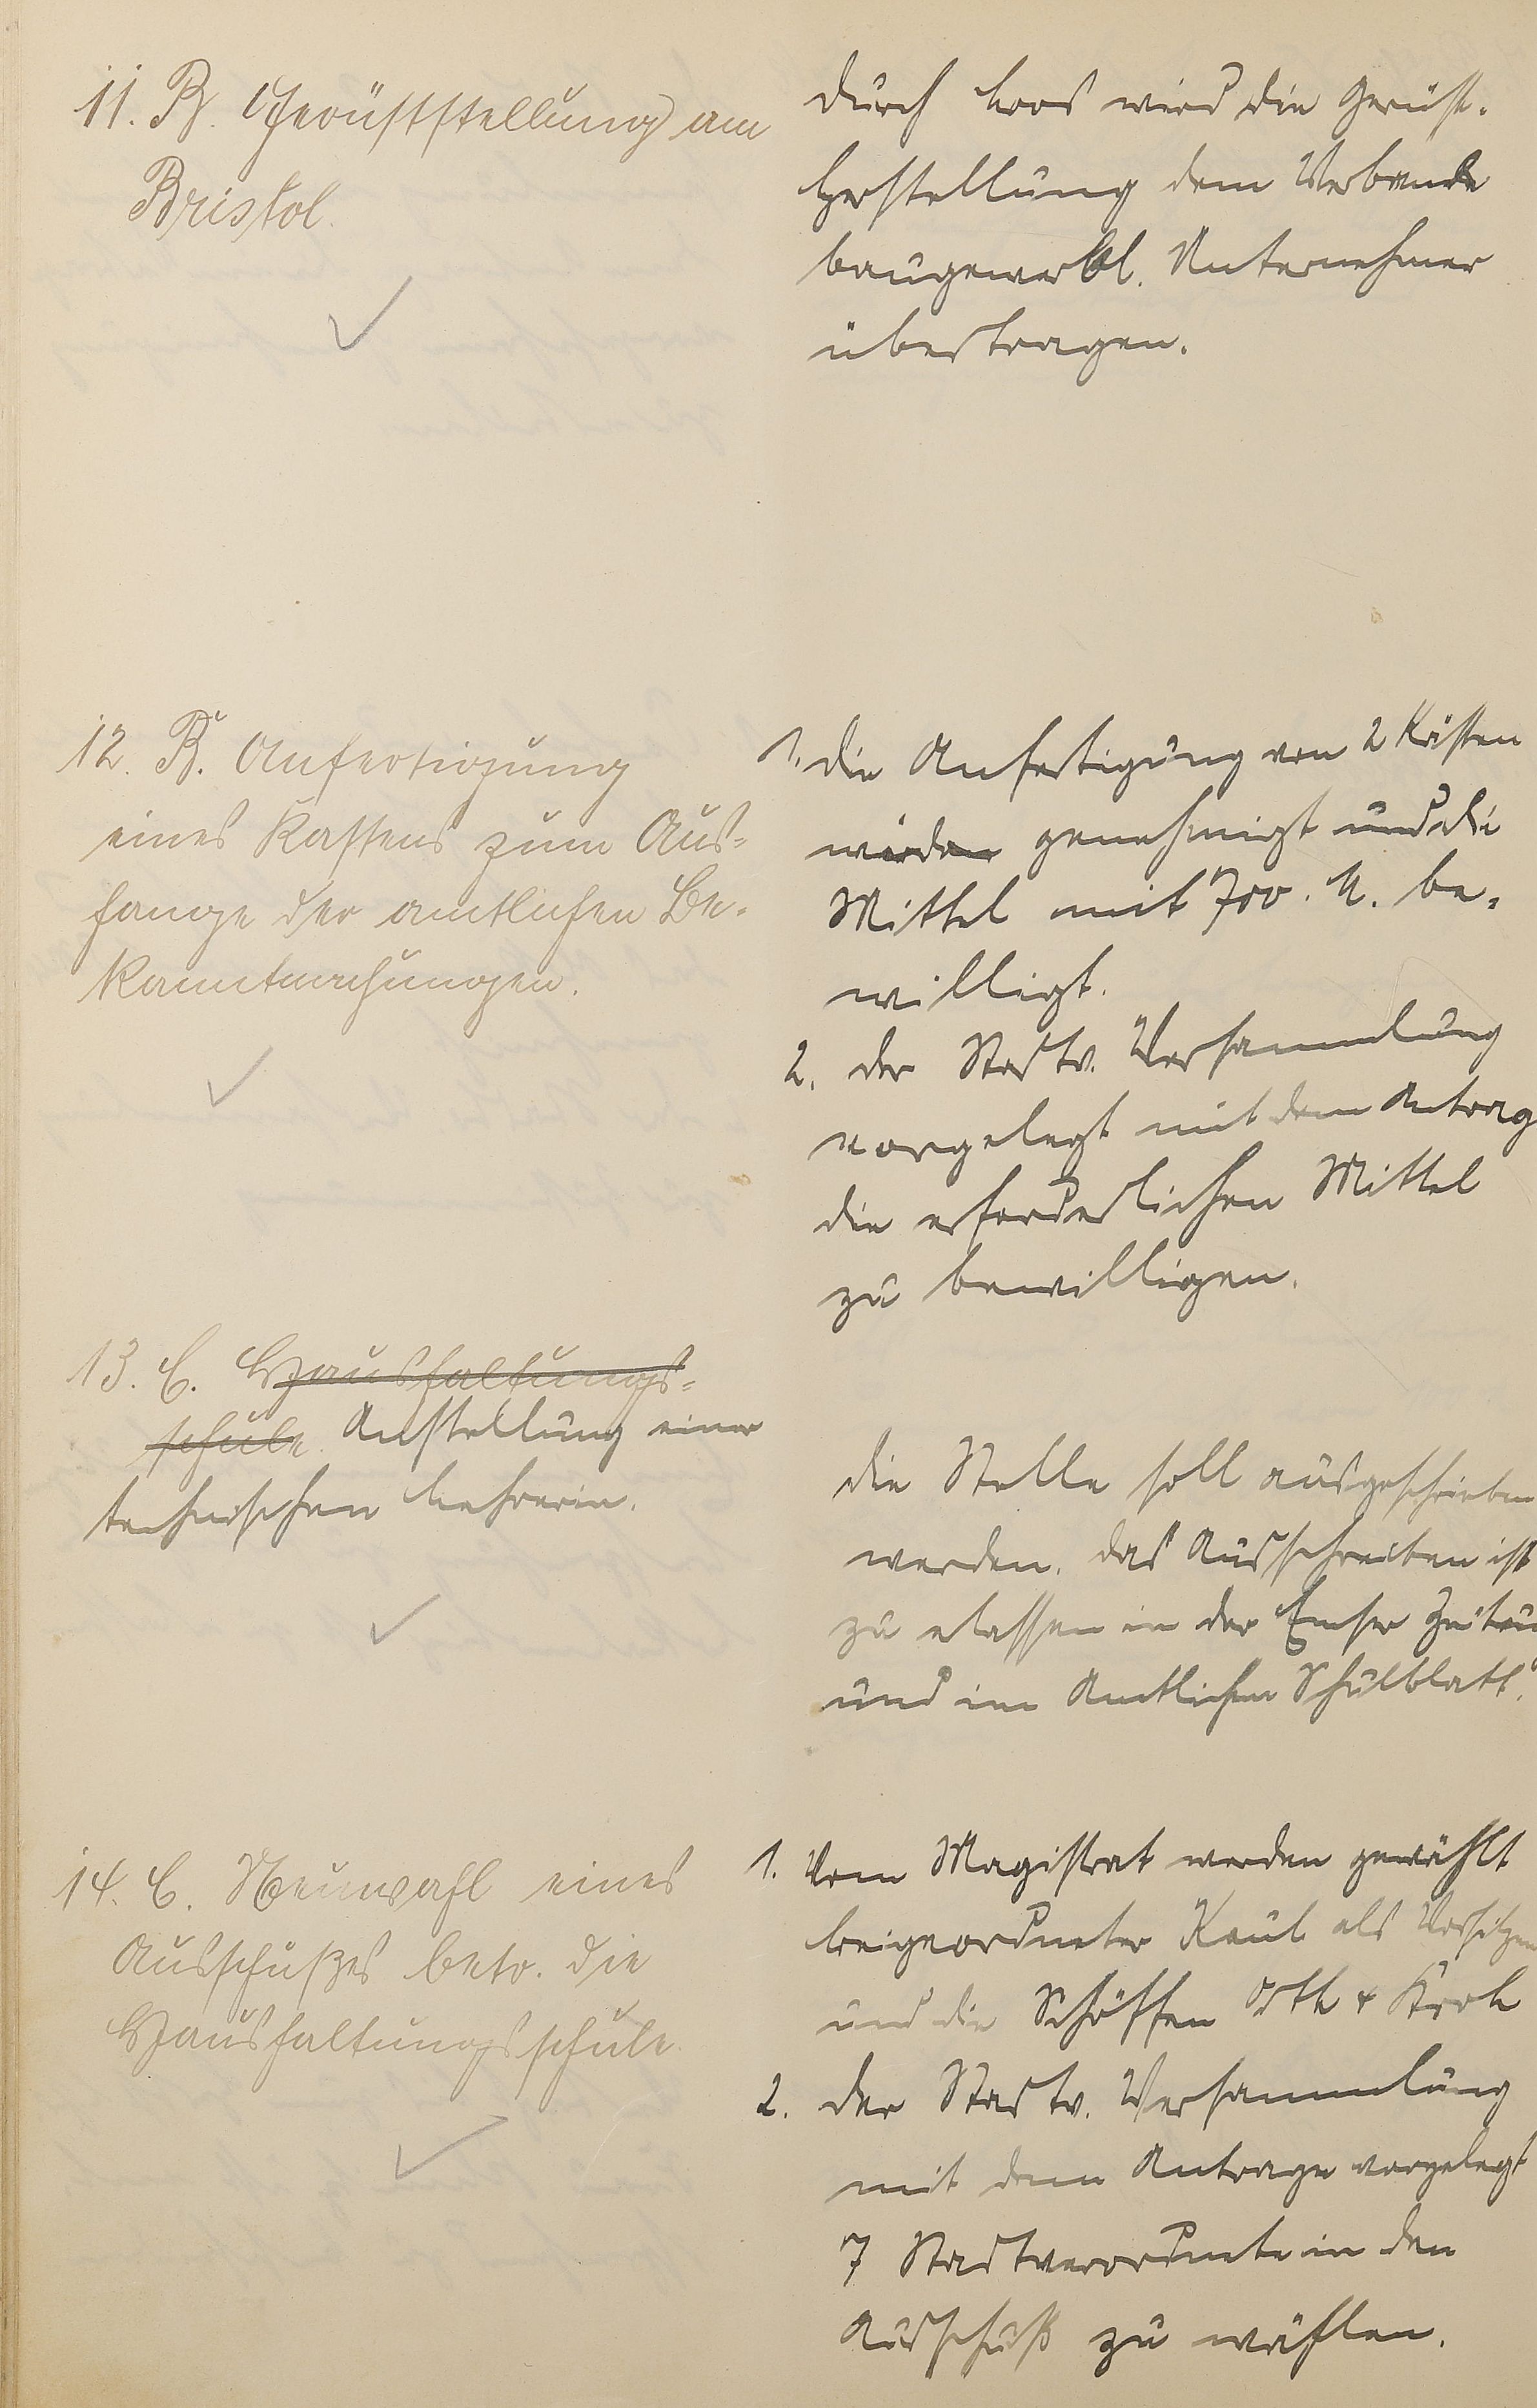 11. B. Gerüststellung am
Bristol.
durch Loos wird die Gerüst-
herstellung dem Verbande
baugewerbl. Unternehmer
übertragen.
12. B. Anfertigung
eines Kastens zum Aus-
hange der amtlichen Be-
kanntmachungen.
1. die Anfertigung von 2 Kästen
genehmigt und die
Mittel mit 700. M. be-
willigt.
2. der Stadtv. Versammlung
vorgelegt mit dem Antrag
die erforderlichen Mittel
zu bewilligen.
13. C. Haushaltungs-
schule Anstellung einer
technischen Lehrerin.
die Stelle soll ausgeschrieben
werden. das Ausschreiben ist
zu elassen in der Emser Zeitu
und im Amtlichen Schulblatt.
14. C. Neuwahl eines
Ausschußes betr. die
Haushaltungsschule.
1. Vom Magistrat werden gewählt
beigeordneter Kaul als Vorsitzen
und die Schöffen Orth & Kroh
2. der Stadtv. Versammlung
mit dem Antrage vorgelegt
7 Stadtverordnete in den
Ausschuß zu wählen.